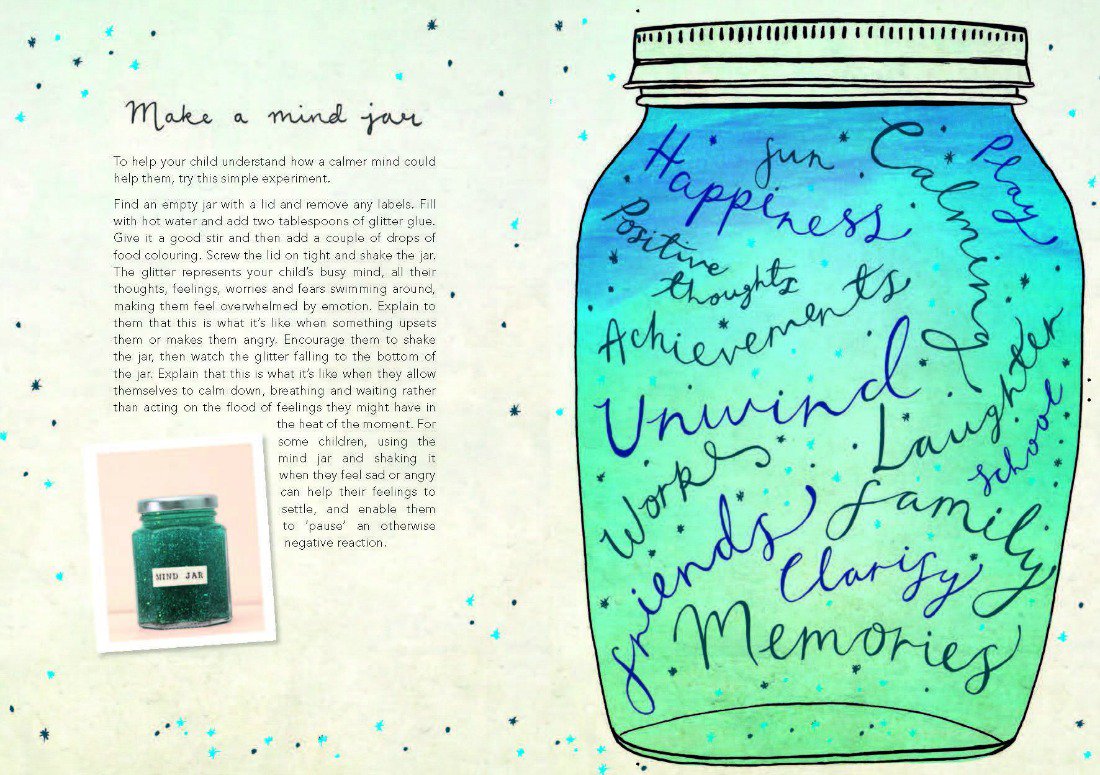 Make a mind jar
To help your child understand how a calmer mind could
help them, try this simple experiment.
Find an empty jar with a lid and remove any labels. Fill
with hot water and add two tablespoons of glitter glue.
Give it a good stir and then add a couple of drops of
food colouring. Screw the lid on tight and shake the jar.
The glitter represents your child's busy mind, all their
thoughts, feelings, worries and fears swimming around,
making them feel overwhelmed by emotion. Explain to
them that this is what it's like when something upsets
them or makes them angry. Encourage them to shake
the jar, then watch the glitter falling to the bottom of
the jar. Explain that this is what it's like when they allow
themselves to calm down, breathing and waiting rather
than acting on the flood of feelings they might have in
the heat of the moment. For
some children, using the
mind jar and shaking it
when they feel sad or angry
can help their feelings to
settle, and enable them
to 'pause' an otherwise
negative reaction.
MIND JAR
Happiness
fun
Calming
Play
Positive
thoughts
Achievements
Unwind
Laughter
Work
School
friends
family
Clarify
Memories